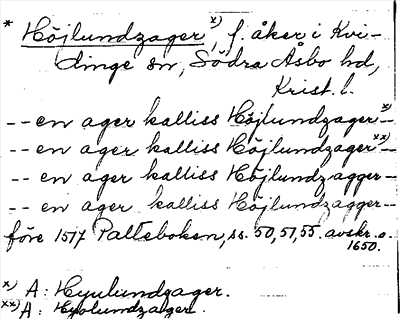 * Höjlundzager x), f. åker i Kvi-
dinge sn, Södra Åsbo hd,
Krist. l.
-- en ager kalliss Höjlundzager x)--
-- en ager kalliss Höjlundzager xx)--
-- en ager kalliss Höjlundzagger--
-- en ager kalliss Höjlundzagger--
före 1517 Palteboken, ss. 50, 51, 55. avskr. o.
1650.
x) A: Hyulundzager.
xx) A: Hyolundzager.